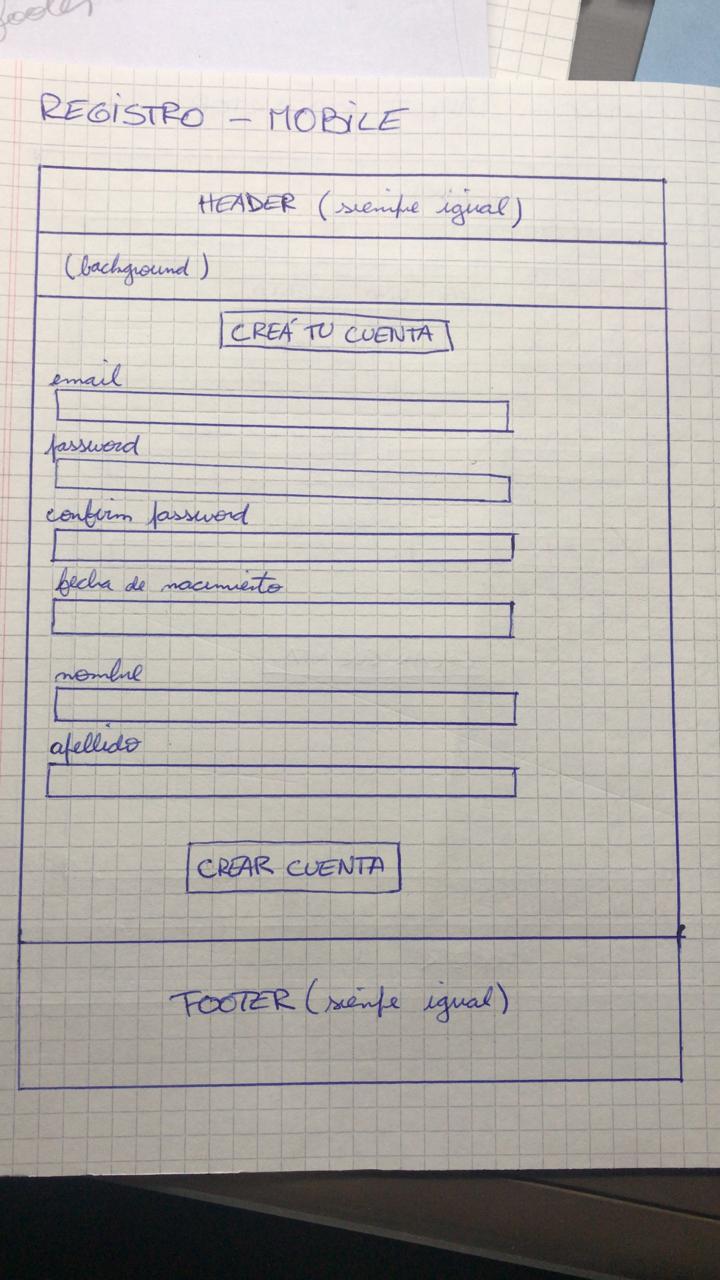 footer
REGISTRO - MOBILE
HEADER (siempe igual)
(background)
CREÁ TU CUENTA
email
password
confirm password
fecha de nacimiento
nombre
apellido
CREAR CUENTA
FOOTER (siempe igual)